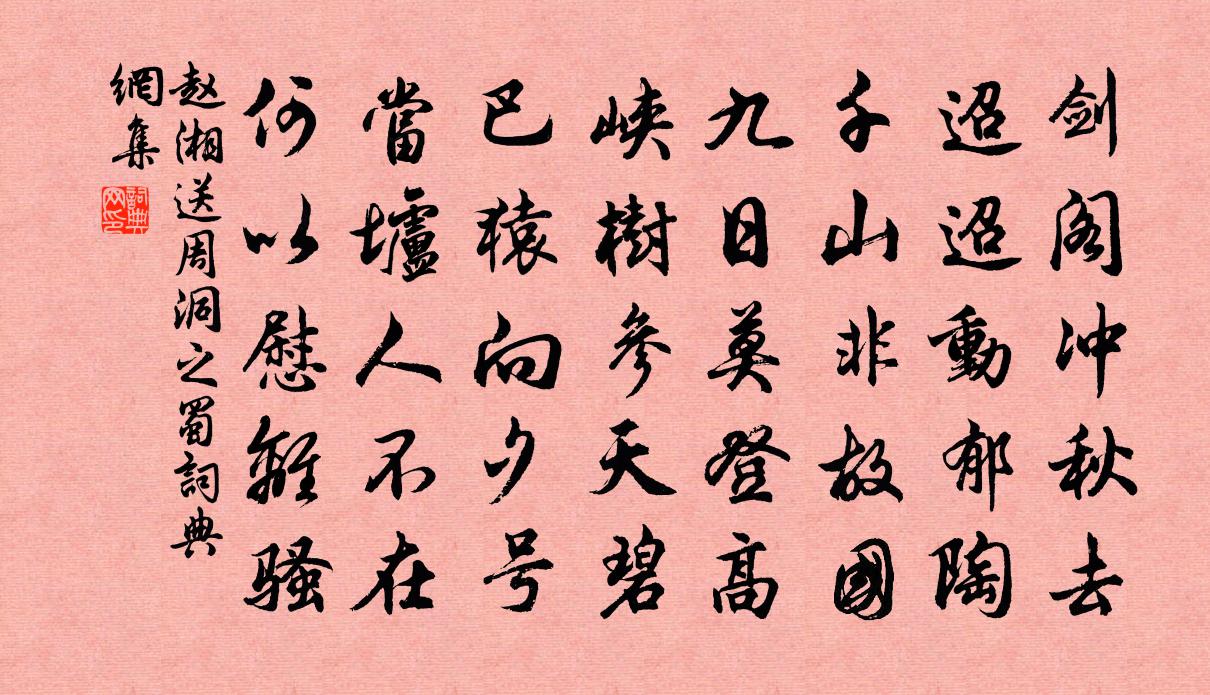 剑阁冲秋去
迢迢動郁陶
千山非故國
九日莫登高
峡樹參天碧
巴猿向夕号
當壚人不在
何以慰離騷
赵湘送周洞之蜀詞典
網集
詞典
网印